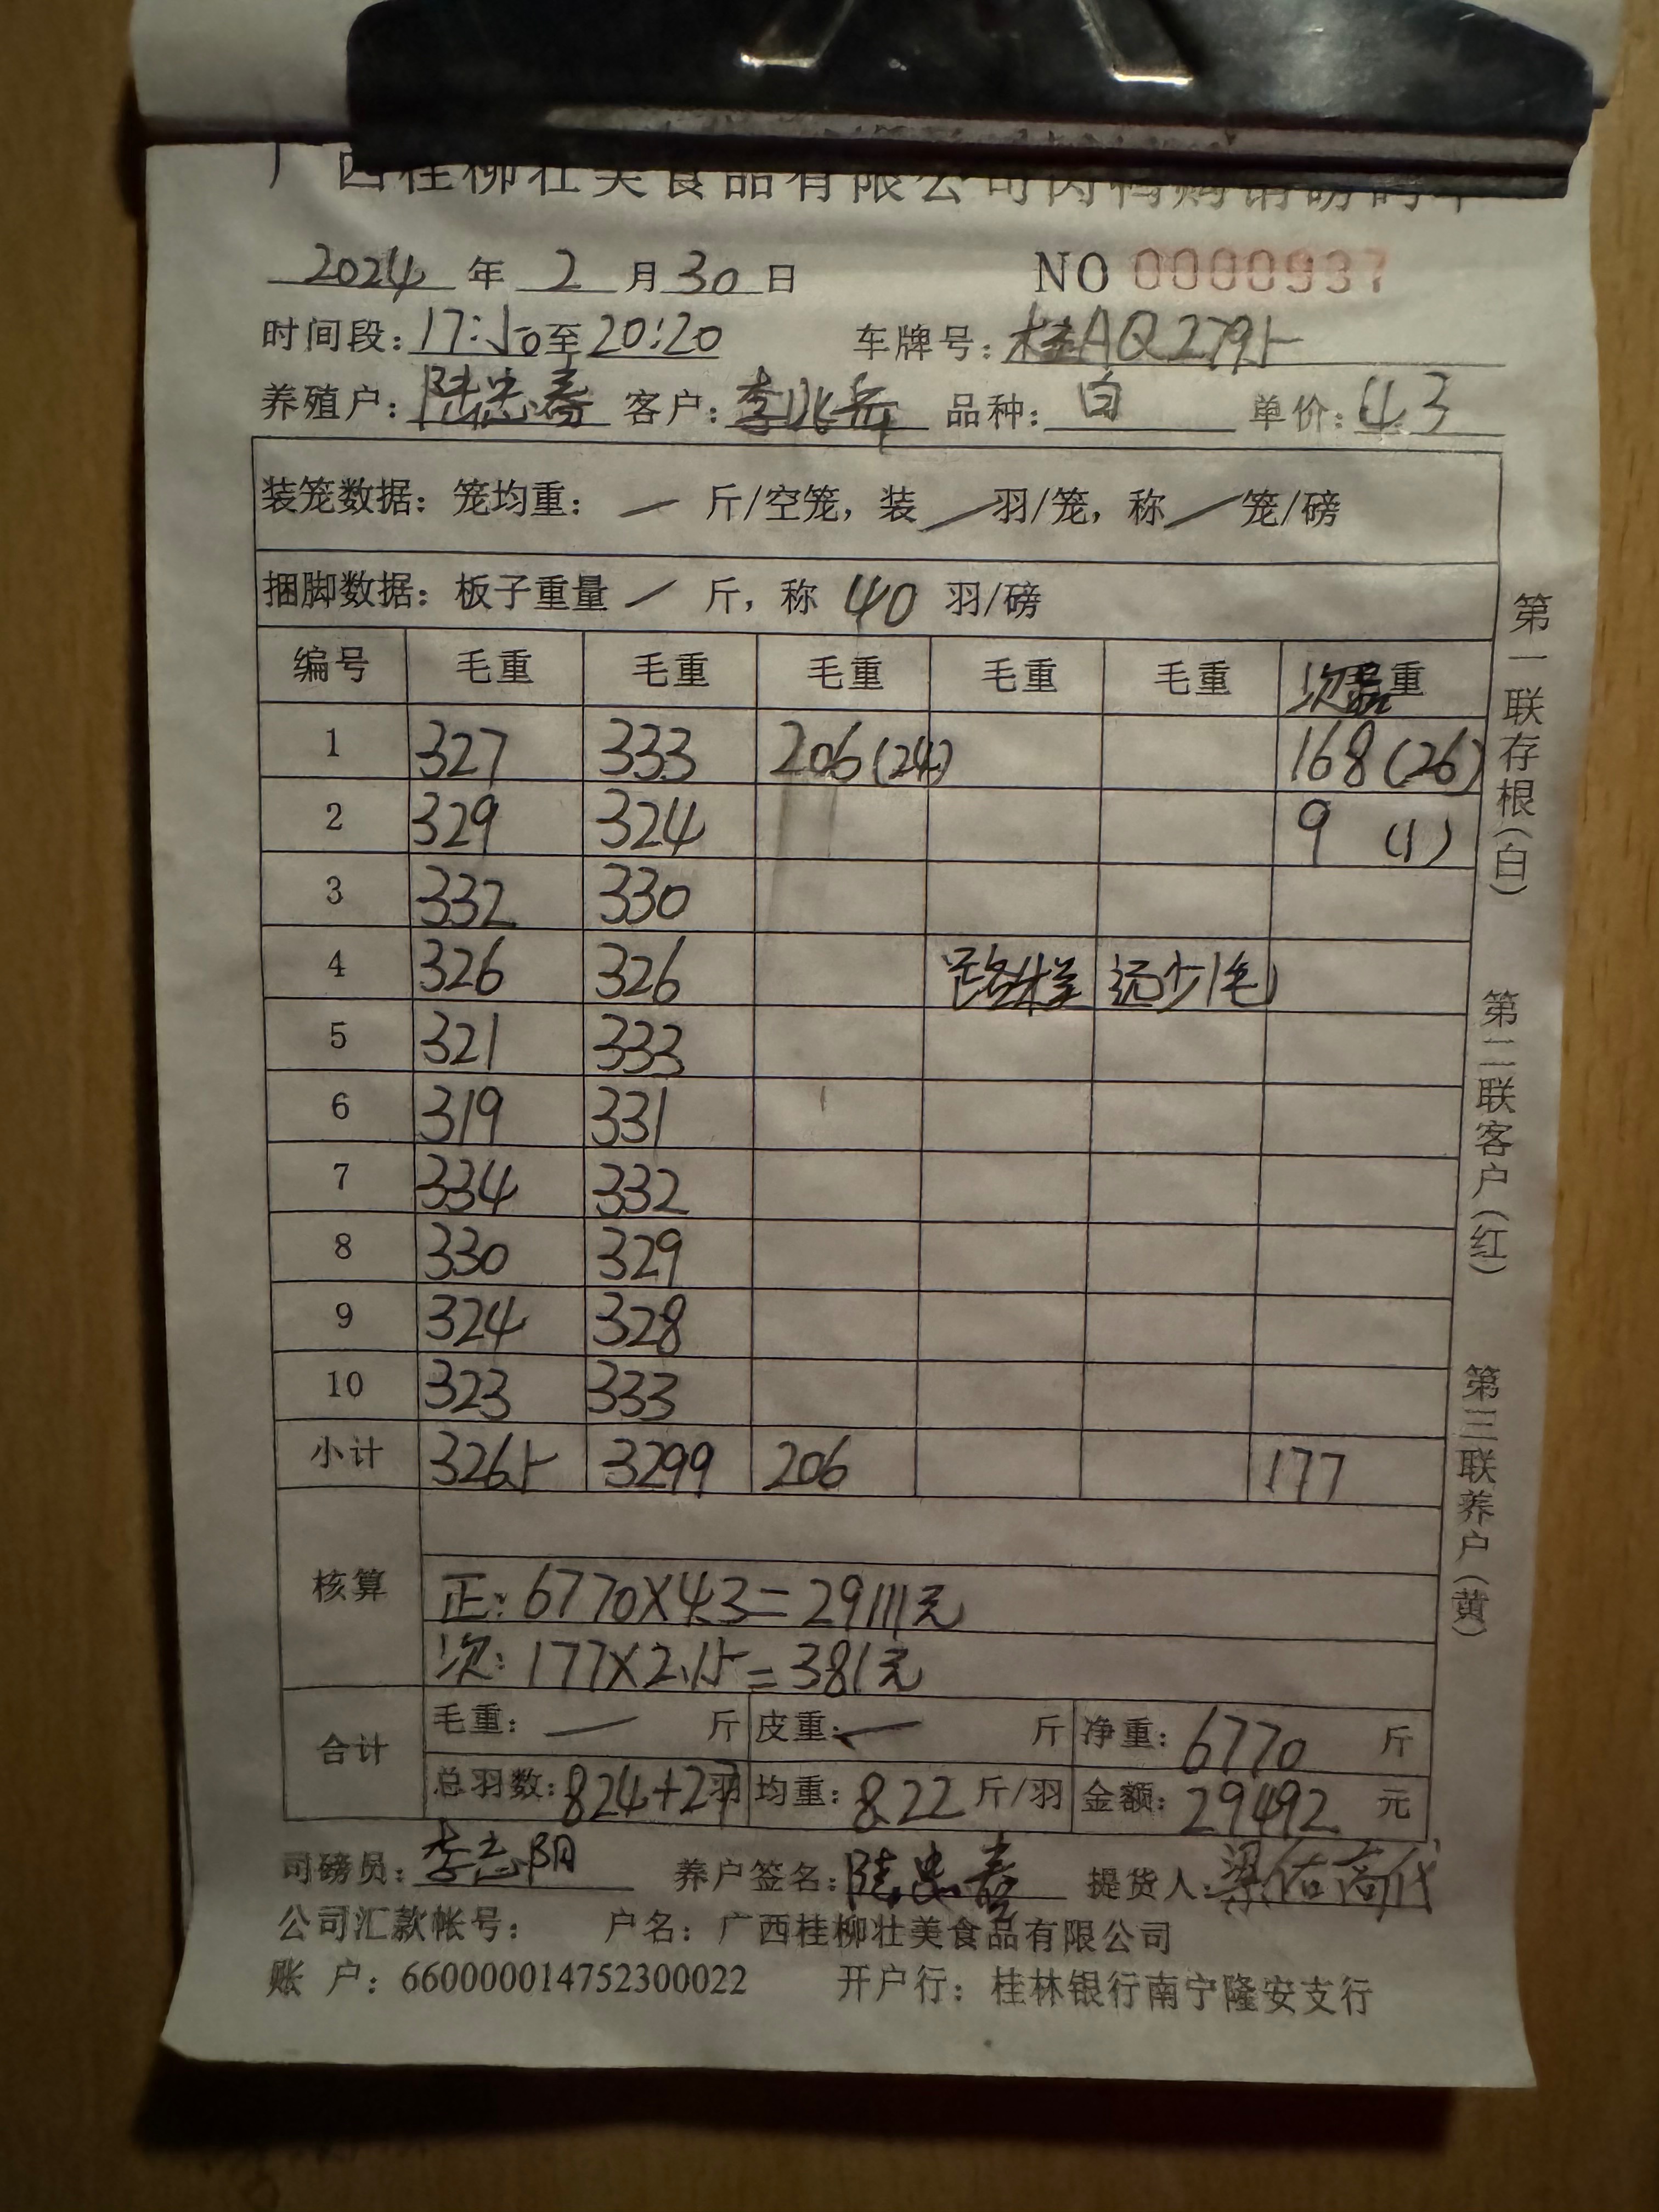 广西桂柳壮美食品有限公司肉鸭购销磅码单
2024 年 2 月 30 日 NO 0000937
时间段：17:50 至 20:20 车牌号：桂AQ2795
养殖户：陆忠春 客户：李兆岳 品种：白 单价：4.3
装笼数据：笼均重：— 斤/空笼，装 — 羽/笼，称 — 笼/磅
捆脚数据：板子重量 — 斤，称 40 羽/磅
编号 毛重 毛重 毛重 毛重 毛重 次品重
1 327 333 206(24) 168(26)
2 329 324 9 (1)
3 332 330
4 326 326
5 321 333
6 319 331
7 334 332
8 330 329
9 324 328
10 323 333
小计 3265 3299 206 177
核算
正：6770×4.3=29111元
次：177×2.15=381元
合计 毛重：— 斤 皮重：— 斤 净重：6770 斤
总羽数：824+27羽 均重：8.22 斤/羽 金额：29492 元
司磅员：李志阳 养户签名：陆忠春 提货人：
公司汇款帐号： 户名：广西桂柳壮美食品有限公司
账 户：660000014752300022 开户行：桂林银行南宁隆安支行
第一联存根（白）
第二联客户（红）
第三联养户（黄）